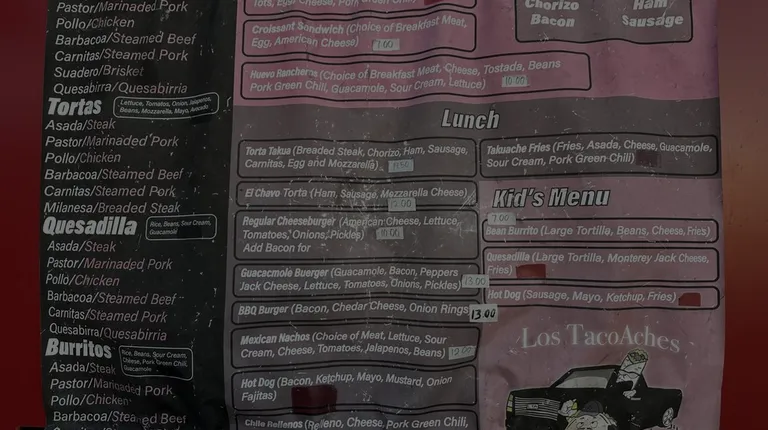 Pastor/Marinaded Pork
Pollo/Chicken
Barbacoa/Steamed Beef
Carnitas/Steamed Pork
Suadero/Brisket
Quesabirra/Quesabirria
Tortas
Lettuce, Tomatos, Onion, Jalapenos,
Beans, Mozzarella, Mayo, Avocado
Asada/Steak
Pastor/Marinaded Pork
Pollo/Chicken
Barbacoa/Steamed Beef
Carnitas/Steamed Pork
Milanesa/Breaded Steak
Quesadilla
Rice, Beans, Sour Cream,
Guacamole
Asada/Steak
Pastor/Marinaded Pork
Pollo/Chicken
Barbacoa/Steamed Beef
Carnitas/Steamed Pork
Quesabirra/Quesabirria
Burritos
Rice, Beans, Sour Cream,
Cheese, Pork Green Chili,
Guacamole
Asada/Steak
Pastor/Marinaded Pork
Pollo/Chicken
Barbacoa/Steamed Beef
Croissant Sandwich (Choice of Breakfast Meat,
Egg, American Cheese) 7.00
Huevo Rancheros (Choice of Breakfast Meat, Cheese, Tostada, Beans
Pork Green Chili, Guacamole, Sour Cream, Lettuce) 10.00
Chorizo Ham
Bacon Sausage
Lunch
Torta Takua (Breaded Steak, Chorizo, Ham, Sausage,
Carnitas, Egg and Mozzarella)
El Chavo Torta (Ham, Sausage, Mezzarella Cheese)
Regular Cheeseburger (American Cheese, Lettuce,
Tomatoes, Onions, Pickles) 10.00
Add Bacon for
Guacacmole Buerger (Guacamole, Bacon, Peppers
Jack Cheese, Lettuce, Tomatoes, Onions, Pickles) 13.00
BBQ Burger (Bacon, Chedar Cheese, Onion Rings 13.00
Mexican Nachos (Choice of Meat, Lettuce, Sour
Cream, Cheese, Tomatoes, Jalapenos, Beans) 12.00
Hot Dog (Bacon, Ketchup, Mayo, Mustard, Onion
Fajitas)
Chile Rellenos (Relleno, Cheese, Pork Green Chili,
Takuache Fries (Fries, Asada, Cheese, Guacamole,
Sour Cream, Pork Green Chili)
Kid's Menu
7.00
Bean Burrito (Large Tortilla, Beans, Cheese, Fries)
Quesadilla (Large Tortilla, Monterey Jack Cheese,
Fries)
Hot Dog (Sausage, Mayo, Ketchup, Fries)
Los TacoAches